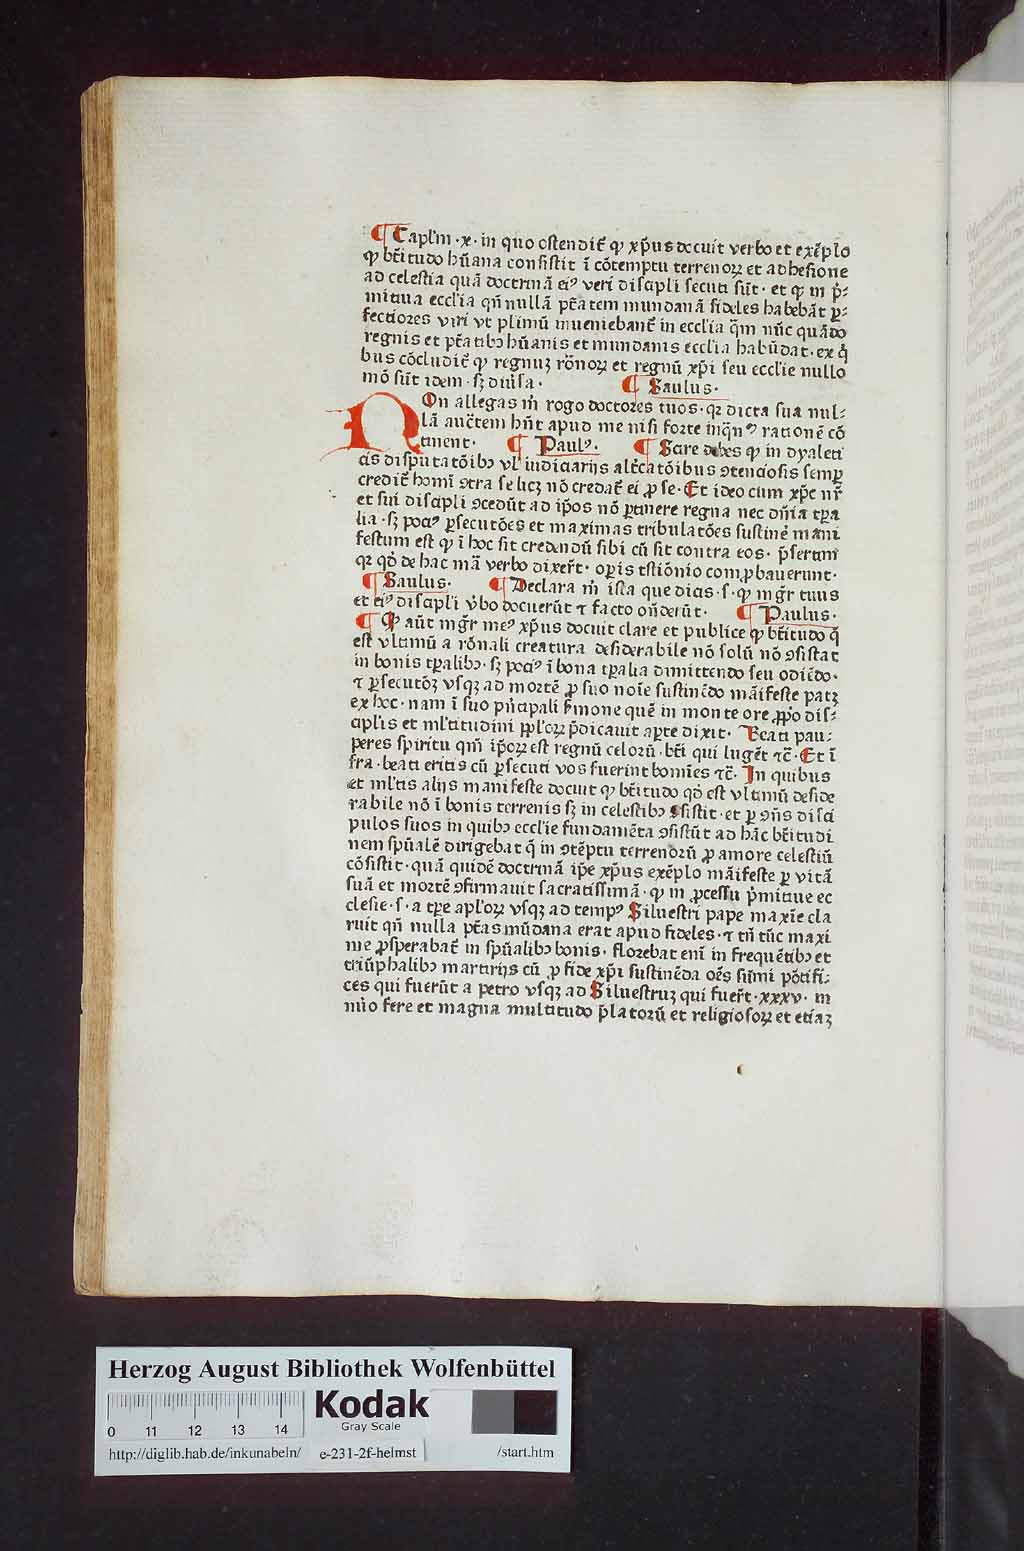 ¶ Capl'm ·x· in quo ostendit̃ ꝙ xp̃us docuit verbo et exẽplo
ꝙ bt̃itudo hũana consistit ĩ cõtemptu terrenoꝝ et adhesione
ad celestia quã doctrinã eiꝰ veri discipli secuti sũt· et ꝙ in p̃-
mitiua eccl'ia qñ nullã pt̃atem mundanã fideles habebãt ꝑ-
fectiores viri vt plimũ inueniebant̃ in eccl'ia q̃m nũc quãdo
regnis et pt̃atibꝫ hũanis et mundanis eccl'ia habũdat· ex q̃
bus cõcludit̃ ꝙ regnuꝫ rõnoꝝ et regnũ xp̃i seu eccl'ie nullo
mõ sũt idem· sꝫ diuersa· ¶ Saulus·
NOn allegas m̃ rogo doctores tuos· qꝛ dicta sua nul-
lã auct̃em hñt apud me nisi forte inq̃nꝰ rationẽ cõ
tinent· ¶ Paulꝰ· ¶ Scire debes ꝙ in dyaleti
cis disputatõibꝫ vl' iudiciarijs alt̃catõibus ꝯtenciosis semꝑ
credit̃ homĩ ꝯtra se licꝫ nõ credat̃ ei ꝓ se· Et ideo cum xp̃c nr̃
et sui discipli ꝯcedũt ad ip̃os nõ ꝑtinere regna nec dñia tꝑa
lia· sꝫ pociꝰ ꝑsecutões et maximas tribulatões sustinẽ mani
festum est ꝙ ĩ hoc sit credendũ sibi cũ sit contra eos· p̃sertim
qꝛ qd̃ de hac mã verbo dixer̃t· oꝑis tstiõnio comꝓbauerunt·
¶ Saulus· ¶ Declara m̃ ista que dicis· s· ꝙ mgr̃ tuus
et eiꝰ discipli v̾bo docuerũt ⁊ facto oñderũt· ¶ Paulus·
¶ Ꝙ aũt mgr̃ meꝰ xp̃us docuit clare et publice ꝙ bt̃itudo q̃
est vltimũ a rõnali creatura desiderabile nõ solũ nõ ꝯsistat
in bonis tꝑalibꝫ· sꝫ pociꝰ ĩ bona tꝑalia dimittendo seu odiẽdo·
⁊ ꝑsecutõꝫ vsqꝫ ad mortẽ ꝓ suo noĩe sustinẽdo mãifeste patꝫ
ex hoc· nam ĩ suo pñcipali s̾mone quẽ in monte ore ꝓp̃o dis-
ciplis et ml'titudini ppl'oꝝ p̃dicauit aꝑte dixit· Beati pau-
peres spiritu qm̃ ip̃oꝝ est regnũ celorũ· bt̃i qui lugẽt ⁊c̃· Et ĩ
fra· beati eritis cũ ꝑsecuti vos fuerint homĩes ⁊c̃· In quibus
et ml'tis alijs manifeste docuit ꝙ bt̃itudo qd̃ est vltimũ deside
rabile nõ ĩ bonis terrenis sꝫ in celestibꝫ ꝯsistit· et ꝑ ꝯñs disci
pulos suos in quibꝫ eccl'ie fundamẽta ꝯsistũt ad hãc bt̃itudi
nem spũalẽ dirigebat q̃ in ꝯtẽptu terrenorũ ꝓ amore celestiũ
cõsistit· quã quidẽ doctrinã ip̃e xp̃us exẽplo mãifeste ꝑ vitã
suã et mortẽ ꝯfirmauit sacratissimã· ꝙ in ꝓcessu p̃mitiue ec
clesie· s· a tꝑe apl'oꝝ vsqꝫ ad tempꝰ Siluestri pape maxĩe cla
ruit qñ nulla pt̃as mũdana erat apud fideles· ⁊ tñ tũc maxi
me ꝓsperabat̃ in spũalibꝫ bonis· florebat enĩ in frequẽtibꝫ et
triũphalibꝫ martirijs cũ ꝓ fide xp̃i sustinẽda oẽs sũmi põtifi-
ces qui fuerũt a petro vsqꝫ ad Siluestruꝫ qui fuer̃t ·xxxv· in
nũo fere et magna multitudo p̃latorũ et religiosoꝝ et etiaꝫ
Herzog August Bibliothek Wolfenbüttel
Kodak
Gray Scale
0 11 12 13 14
http://diglib.hab.de/inkunabeln/ e-231-2f-helmst /start.htm